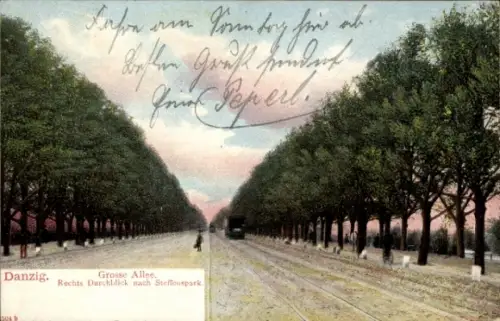 Fahre am Sonntag hier ab.
Besten Gruß sendet
Peperl
Danzig.
Grosse Allee.
Rechts Durchblick nach Steffenspark.